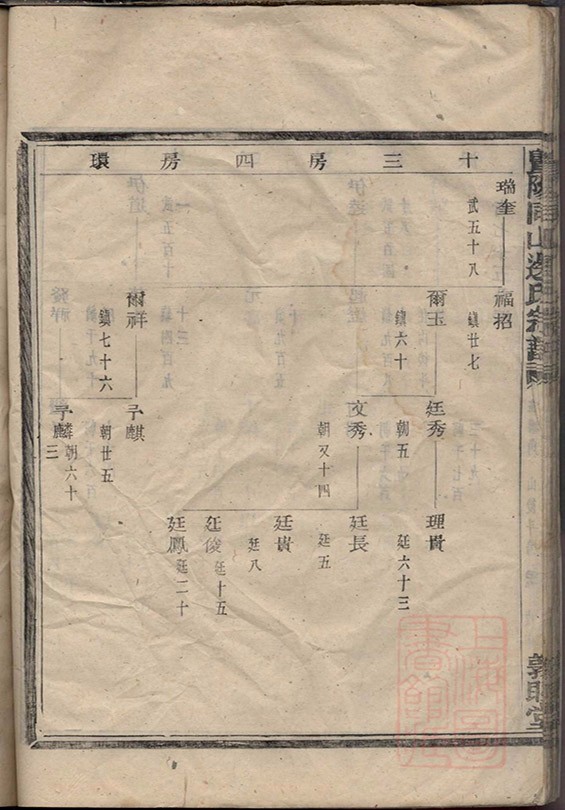 十三房四房環
瑞奎
武五十八
福招
鎮廿七
爾玉
鎮六十
爾祥
鎮七十六
廷秀
朝五
文秀
朝又十四
子麒
朝廿五
子麟
朝六十三
理貴
廷六十三
廷長
廷五
廷貴
廷八
廷俊
廷十五
廷鳳
廷二十
暨陽同山邊氏宗譜
敦睦堂
上海圖書館藏